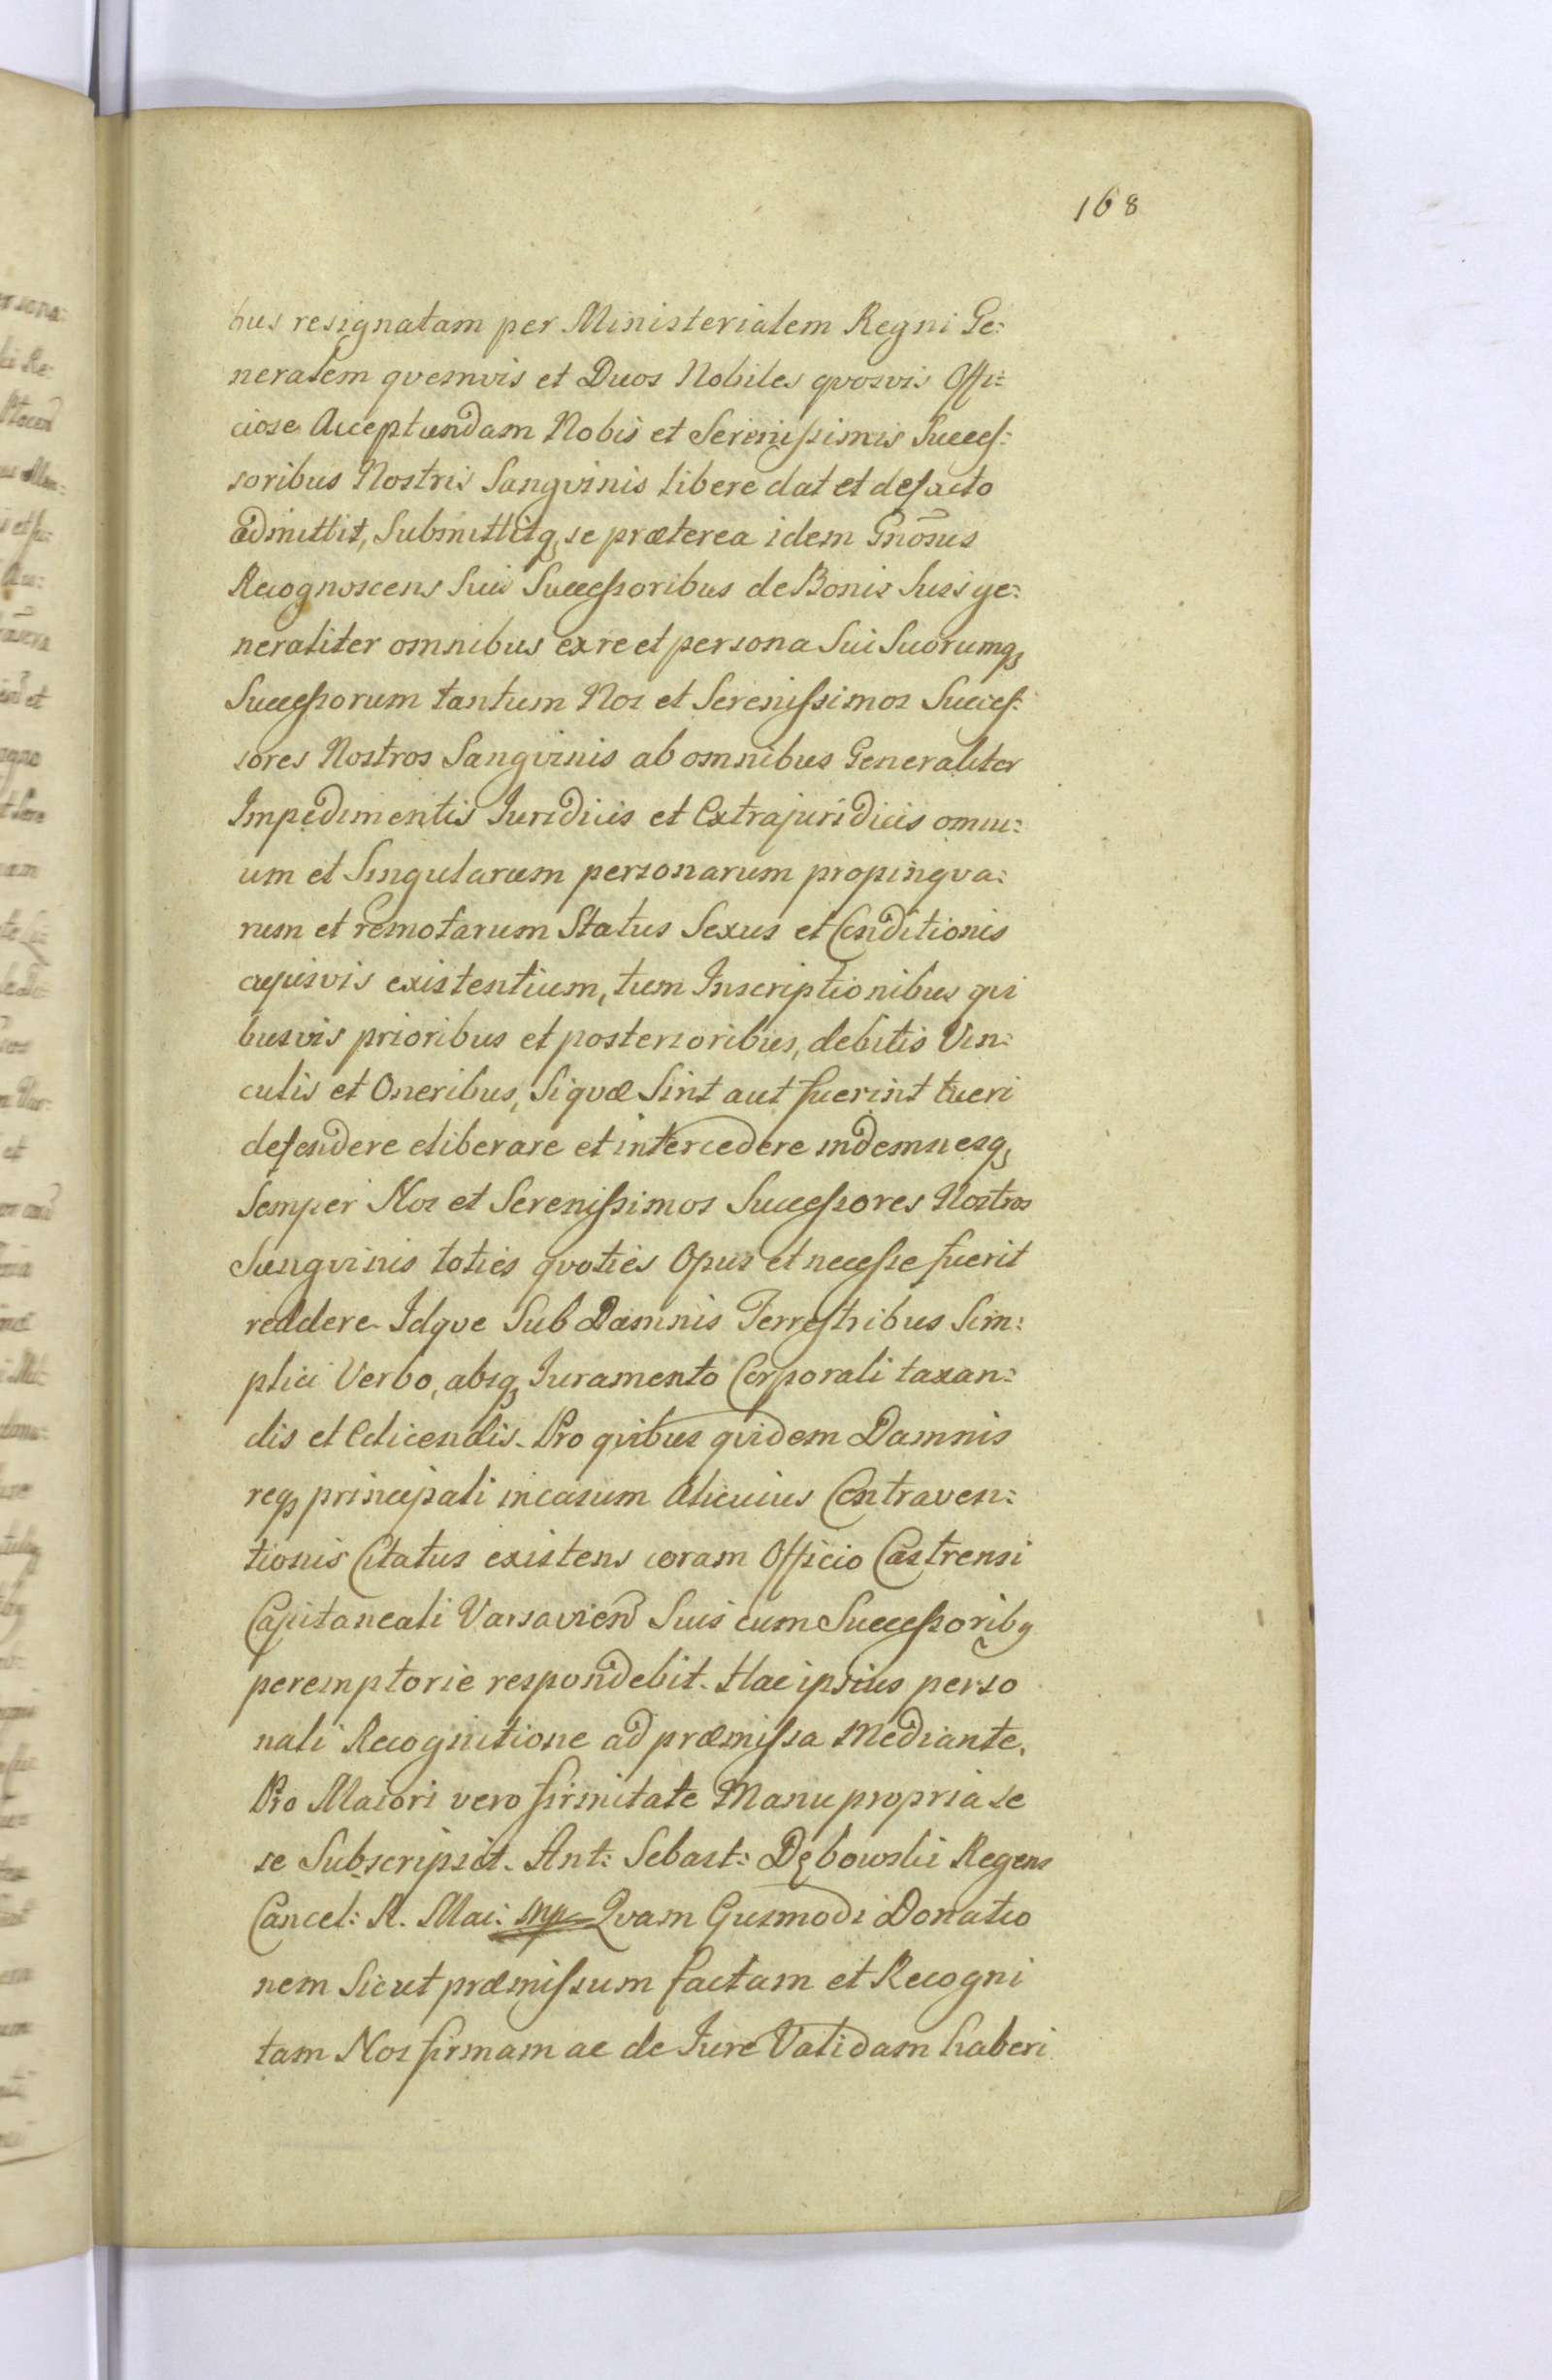 168
bus resignatam per Ministerialem Regni Ge:
neralem qvemvis et Duos Nobiles qvosvis Offi:
ciose Acceptandam Nobis et Serenissimis Succes:
soribus Nostris Sangvinis libere dat et defacto
admittit, Submittitq, se præterea idem Gnõsus
Recognoscens Suis Successoribus de Bonis Suis ge:
neraliter omnibus ex re et persona Sui Suorumq,
Successorum tantum Nos et Serenissimos Succes:
sores Nostros Sangvinis ab omnibus Generaliter
Impedimentis Juridicis et Extrajuridicis omni:
um et Singularum personarum propinqva:
rum et remotarum Status Sexus et Conditionis
cujusvis existentium, tum Inscriptionibus qvi
busvis prioribus et posterioribus, debitis Vin:
culis et Oneribus, Siqvæ Sint aut fuerint tueri
defendere eliberare et intercedere indemnesq,
Semper Nos et Serenissimos Successores Nostros
Sangvinis toties qvoties Opus et necesse fuerit
reddere Idqve Sub Damnis Terrestribus Sim:
plici Verbo, absq, Juramento Corporali taxan:
dis et Edicendis. Pro qvibus qvidem Damnis
req, principali in casum Alicuius Contraven:
tionis Citatus existens coram Officio Castrensi
Capitaneali Varsavien Suis cum Successoribq
peremptorie respondebit. Hac ipsius perso
nali Recognitione ad præmissa Mediante.
Pro Maiori vero firmitate Manu propria se
se Subscripsit. Ant: Sebast: Dębowski Regens
Cancel: R. Mai: mp Qvam Gusmodi Donatio
nem Sicut præmissum factam et Recogni
tam Nos firmam ac de Jure Validam haberi